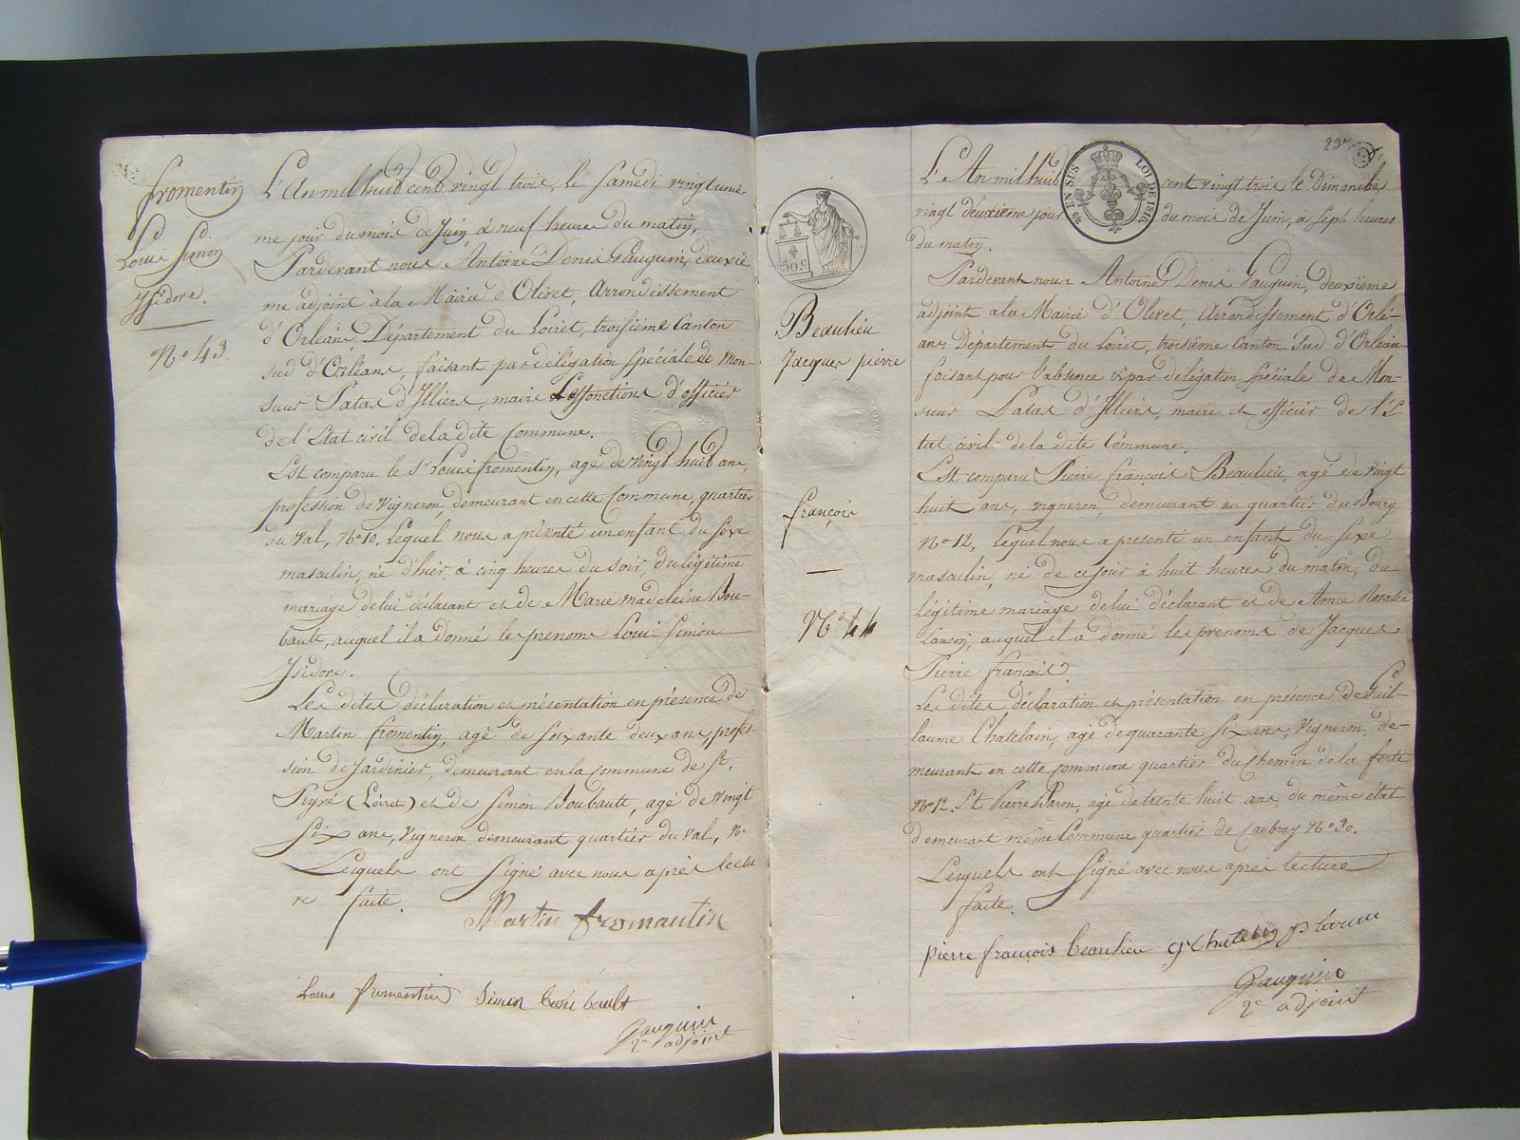 fromentin
Louis Simon
Ysidore.
N° 43.
L'An mil huit cent vingt trois, le samedi vingt unie-
me jour du mois de Juin, à neuf heures du matin,
Pardevant nous Antoine Denis Gauguin, deuxiè
me adjoint à la Mairie d'Olivet, Arrondissement
d'Orléans Département du Loiret, troisième Canton
sud d'Orléans, faisant par délégation spéciale de Mon-
sieur Patas d'Illiers, maire Les fonctions d'officier
de l'Etat civil de la dite Commune.
Est comparu le Sr Louis fromentin, agé de vingt huit ans,
profession de Vigneron, demeurant en cette Commune, quartier
du Val, N° 10. lequel nous a présenté un enfant du sexe
masculin, né d'hier, à cinq heures du soir, du légitime
mariage de lui déclarant et de Marie Madeleine Bou-
bault, auquel il a donné les prenoms Louis Simon
Ysidore.
Les dites déclaration et présentation en présence de
Martin fromentin, agé de soixante deux ans, profes-
sion de Jardinier, demeurant en la commune de St.
Pryvé (Loiret) et de Simon Boubault, agé de vingt
Six ans, Vigneron demeurant quartier du Val, N°
Lesquels ont Signé avec nous après lectu
re faite.
Martin fromantin
Louis fromentin Simon boubault
Gauguin
2e adjoint
Beaulieu
Jacques pierre
françois
N° 44
L'An mil huit cent vingt trois le Dimanche
vingt deuxieme jour du mois de Juin, à sept heures
du matin.
Pardevant nous Antoine Denis Gauguin, deuxième
adjoint a la Mairie d'Olivet, Arrondissement d'Orlé-
ans Département du Loiret, troisième Canton Sud d'Orléans
faisant pour l'absence et par délégation spéciale de Mon-
sieur Patas d'Illiers, maire et officier de l'E
tat civil de la dite Commune.
Est comparu Pierre françois Beaulieu, agé de vingt
huit ans, vigneron, demeurant au quartier du Bourg
N° 12, lequel nous a présenté un enfant du sexe
masculin, né de ce jour à huit heures du matin, du
légitime mariage de lui déclarant et de Anne Rosalie
auquel il a donné les prenoms de Jacques
Pierre françois.
Les dites déclaration et présentation en présence de Guil-
laume Chatelain, agé de quarante Six ans, Vigneron, de-
meurant en cette commune quartier du Chemin de la forte
N° 12. et Pierre agé de trente huit ans, du même état
demeurant même Commune quartier de N° 30.
Lesquels ont Signé avec nous après lecture
faite.
pierre françois beaulieu
Gauguin
2e adjoint
EN SUS
LOI DE 1816
50.C